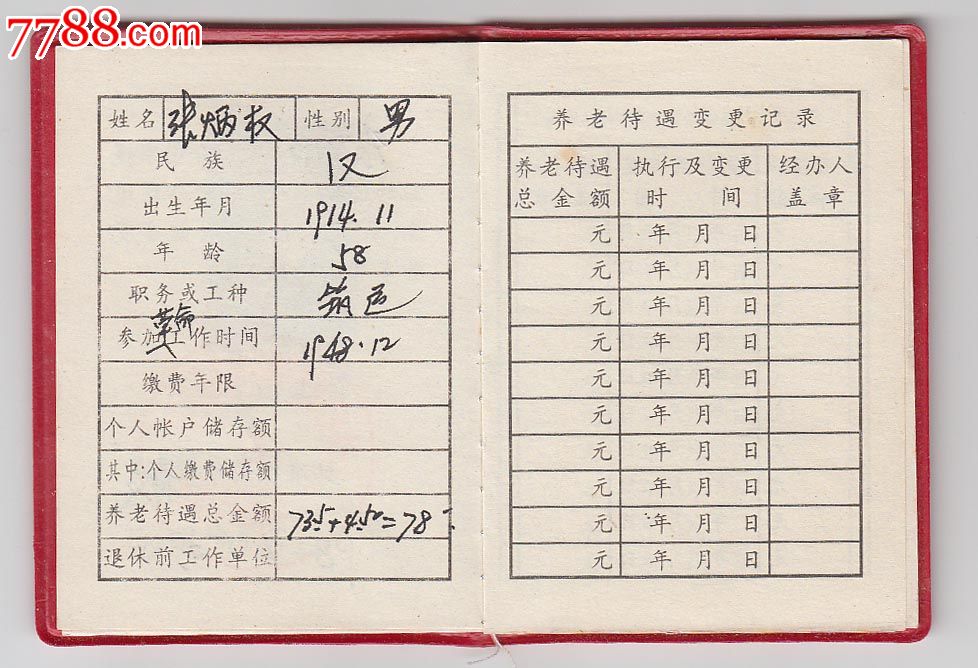 7788.com
姓名 张炳权 性别 男
民族 汉
出生年月 1914.11
年龄 58
职务或工种
参加革命工作时间 1948.12
缴费年限
个人帐户储存额
其中:个人缴费储存额
养老待遇总金额 73.5+4.50=78
退休前工作单位
养老待遇变更记录
养老待遇总金额 执行及变更时间 经办人盖章
元 年 月 日
元 年 月 日
元 年 月 日
元 年 月 日
元 年 月 日
元 年 月 日
元 年 月 日
元 年 月 日
元 年 月 日
元 年 月 日